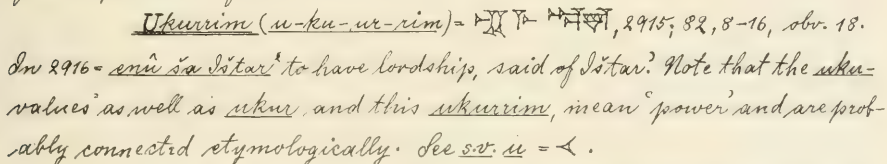 Ukurrim (u-ku-ur-rim) = , 2915; 82, 8-16, obv. 18.
In 2916 = enû ša Ištar 'to have lordship, said of Ištar'. Note that the uku-
values as well as ukur and this ukurrim, mean 'power' and are prob-
ably connected etymologically. See s.v. u = 𒌋.